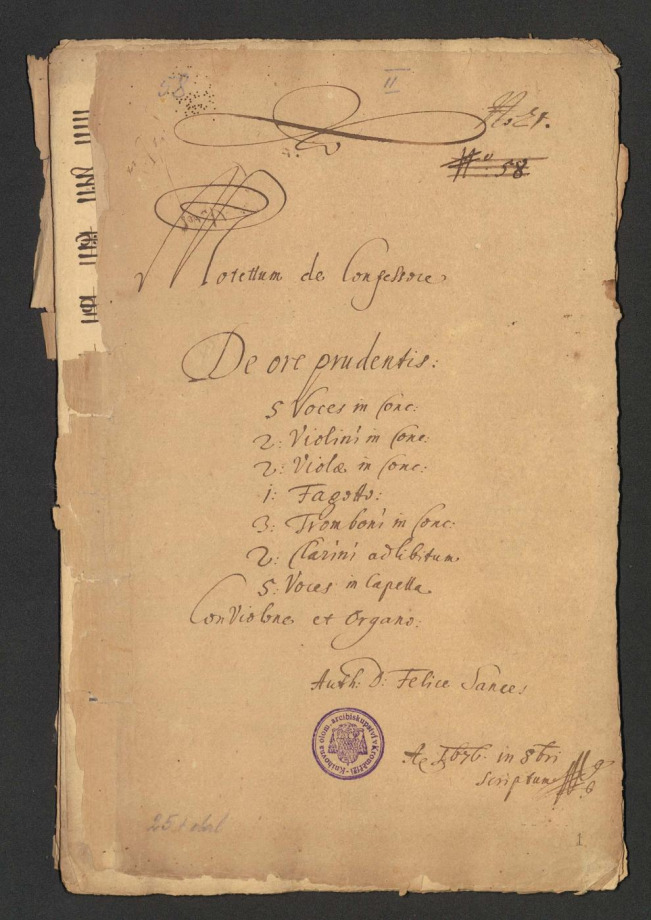 II
No 21.
No 58
Motettum de Confessore
De ore prudentis:
5 Voces in Conc:
2: Violini in Conc:
2: Violæ in Conc:
1: Fagotto:
3: Tromboni in Conc:
2: Clarini ad libitum
5: Voces in Capella
Con Violone et Organo:
Auth: D: Felice Sances
Knihovna olom. arcibiskupství v Kroměříži
Ao 1676 in 8bri
Scriptum
1